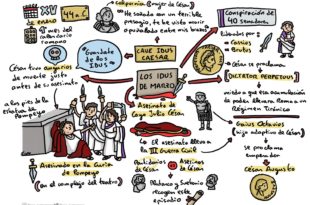 XV
44 a.C.
calendario
romano
Calpurnia (mujer de César)
He soñado con un terrible
presagio, te he visto morir
apuñalado entre mis brazos
Conspiración de
40 senadores
liderados por
Cassius
Brutus
Guárdate
de los
IDUS
CAVE IDUS
CAESAR
LOS IDUS
DE MARZO
César tuvo augurios
de muerte justo
antes de su asesinato
a los pies de la
estatua de
Pompeyo
Asesinato de
Cayo Julio César
DICTATOR PERPETUUS
acumulación
de poder llevara Roma a un
Régimen Tiránico
Gaius Octavius
(hijo adoptivo de César)
se proclama
emperador
César Augusto
El asesinato llevará a
la III Guerra Civil
Partidarios
de César
Asesinos
de César
Plutarco y Suetonio
recogen este
episodio
Asesinado en la Curia
de Pompeyo
(en el complejo del teatro)